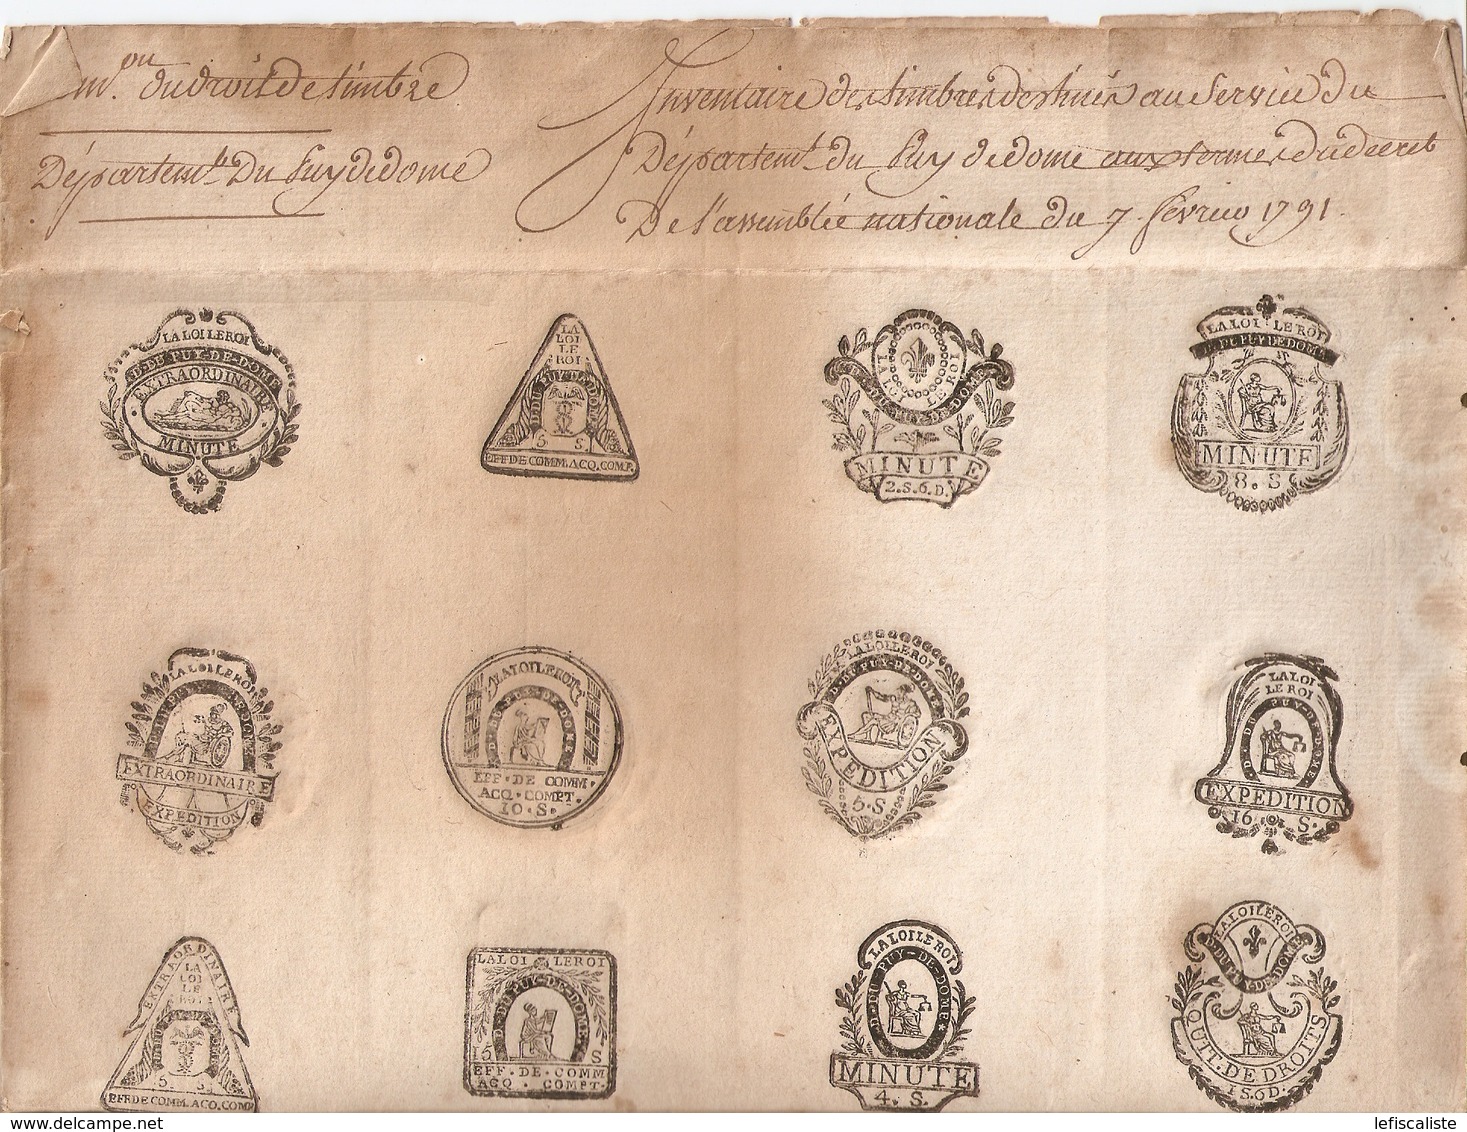 m.on du droit de timbre
Départem.t Du Puy de dome
Inventaire des timbres destinés au Service du
Départem.t du Puy de dome aux termes du decret
De l'assemblée nationale du 7 février 1791.
LA LOI LE ROI
D. DE PUY-DE-DOME
EXTRAORDINAIRE
MINUTE
LA
LOI
LE
ROI
D. DU PUY-D-DOME
5 S.
EFF DE COMM. ACQ. COMPT.
LA LOI LE ROI
D. DU PUY-DE-DOME
MINUTE
2.S.6.D.
LA LOI LE ROI
D. DU PUY DE DOME
MINUTE
8. S
LA LOI LE ROI
D. DU PUY-DE-DOME
EXTRAORDINAIRE
EXPEDITION
LA LOI LE ROI
D. DU PUY-DE-DOME
EFF. DE COMM.
ACQ. COMPT.
10. S.
LA LOI LE ROI
D. DU PUY-DE-DOME
EXPEDITION
5. S
LA LOI
LE ROI
D. DU PUY-DE-DOME
EXPEDITION
16 S.
EXTRAORDINAIRE
LA
LOI
LE
ROI
5. S
EFF DE COMM. ACQ. COMP
LA LOI LE ROI
D. DU PUY-DE-DOME
15 S
EFF. DE COMM
ACQ. COMPT.
LA LOI LE ROI
D. DU PUY-DE-DOME*
MINUTE
4. S.
LA LOI LE ROI
D. DU PUY-DE-DOME
QUIT. DE DROITS
1 S. 6 D.
www.delcampe.net
lefiscaliste